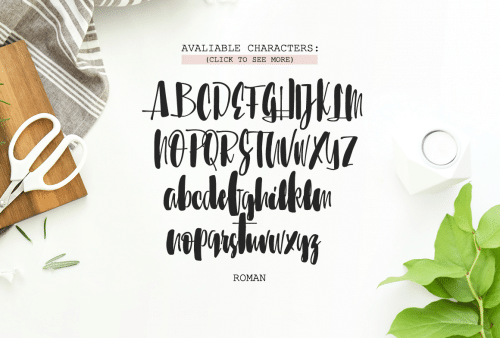 AVALIABLE CHARACTERS:
(CLICK TO SEE MORE)
ABCDEFGHIJKLM
NOPQRSTUVWXYZ
abcdefghijklm
nopqrstuvwxyz
ROMAN